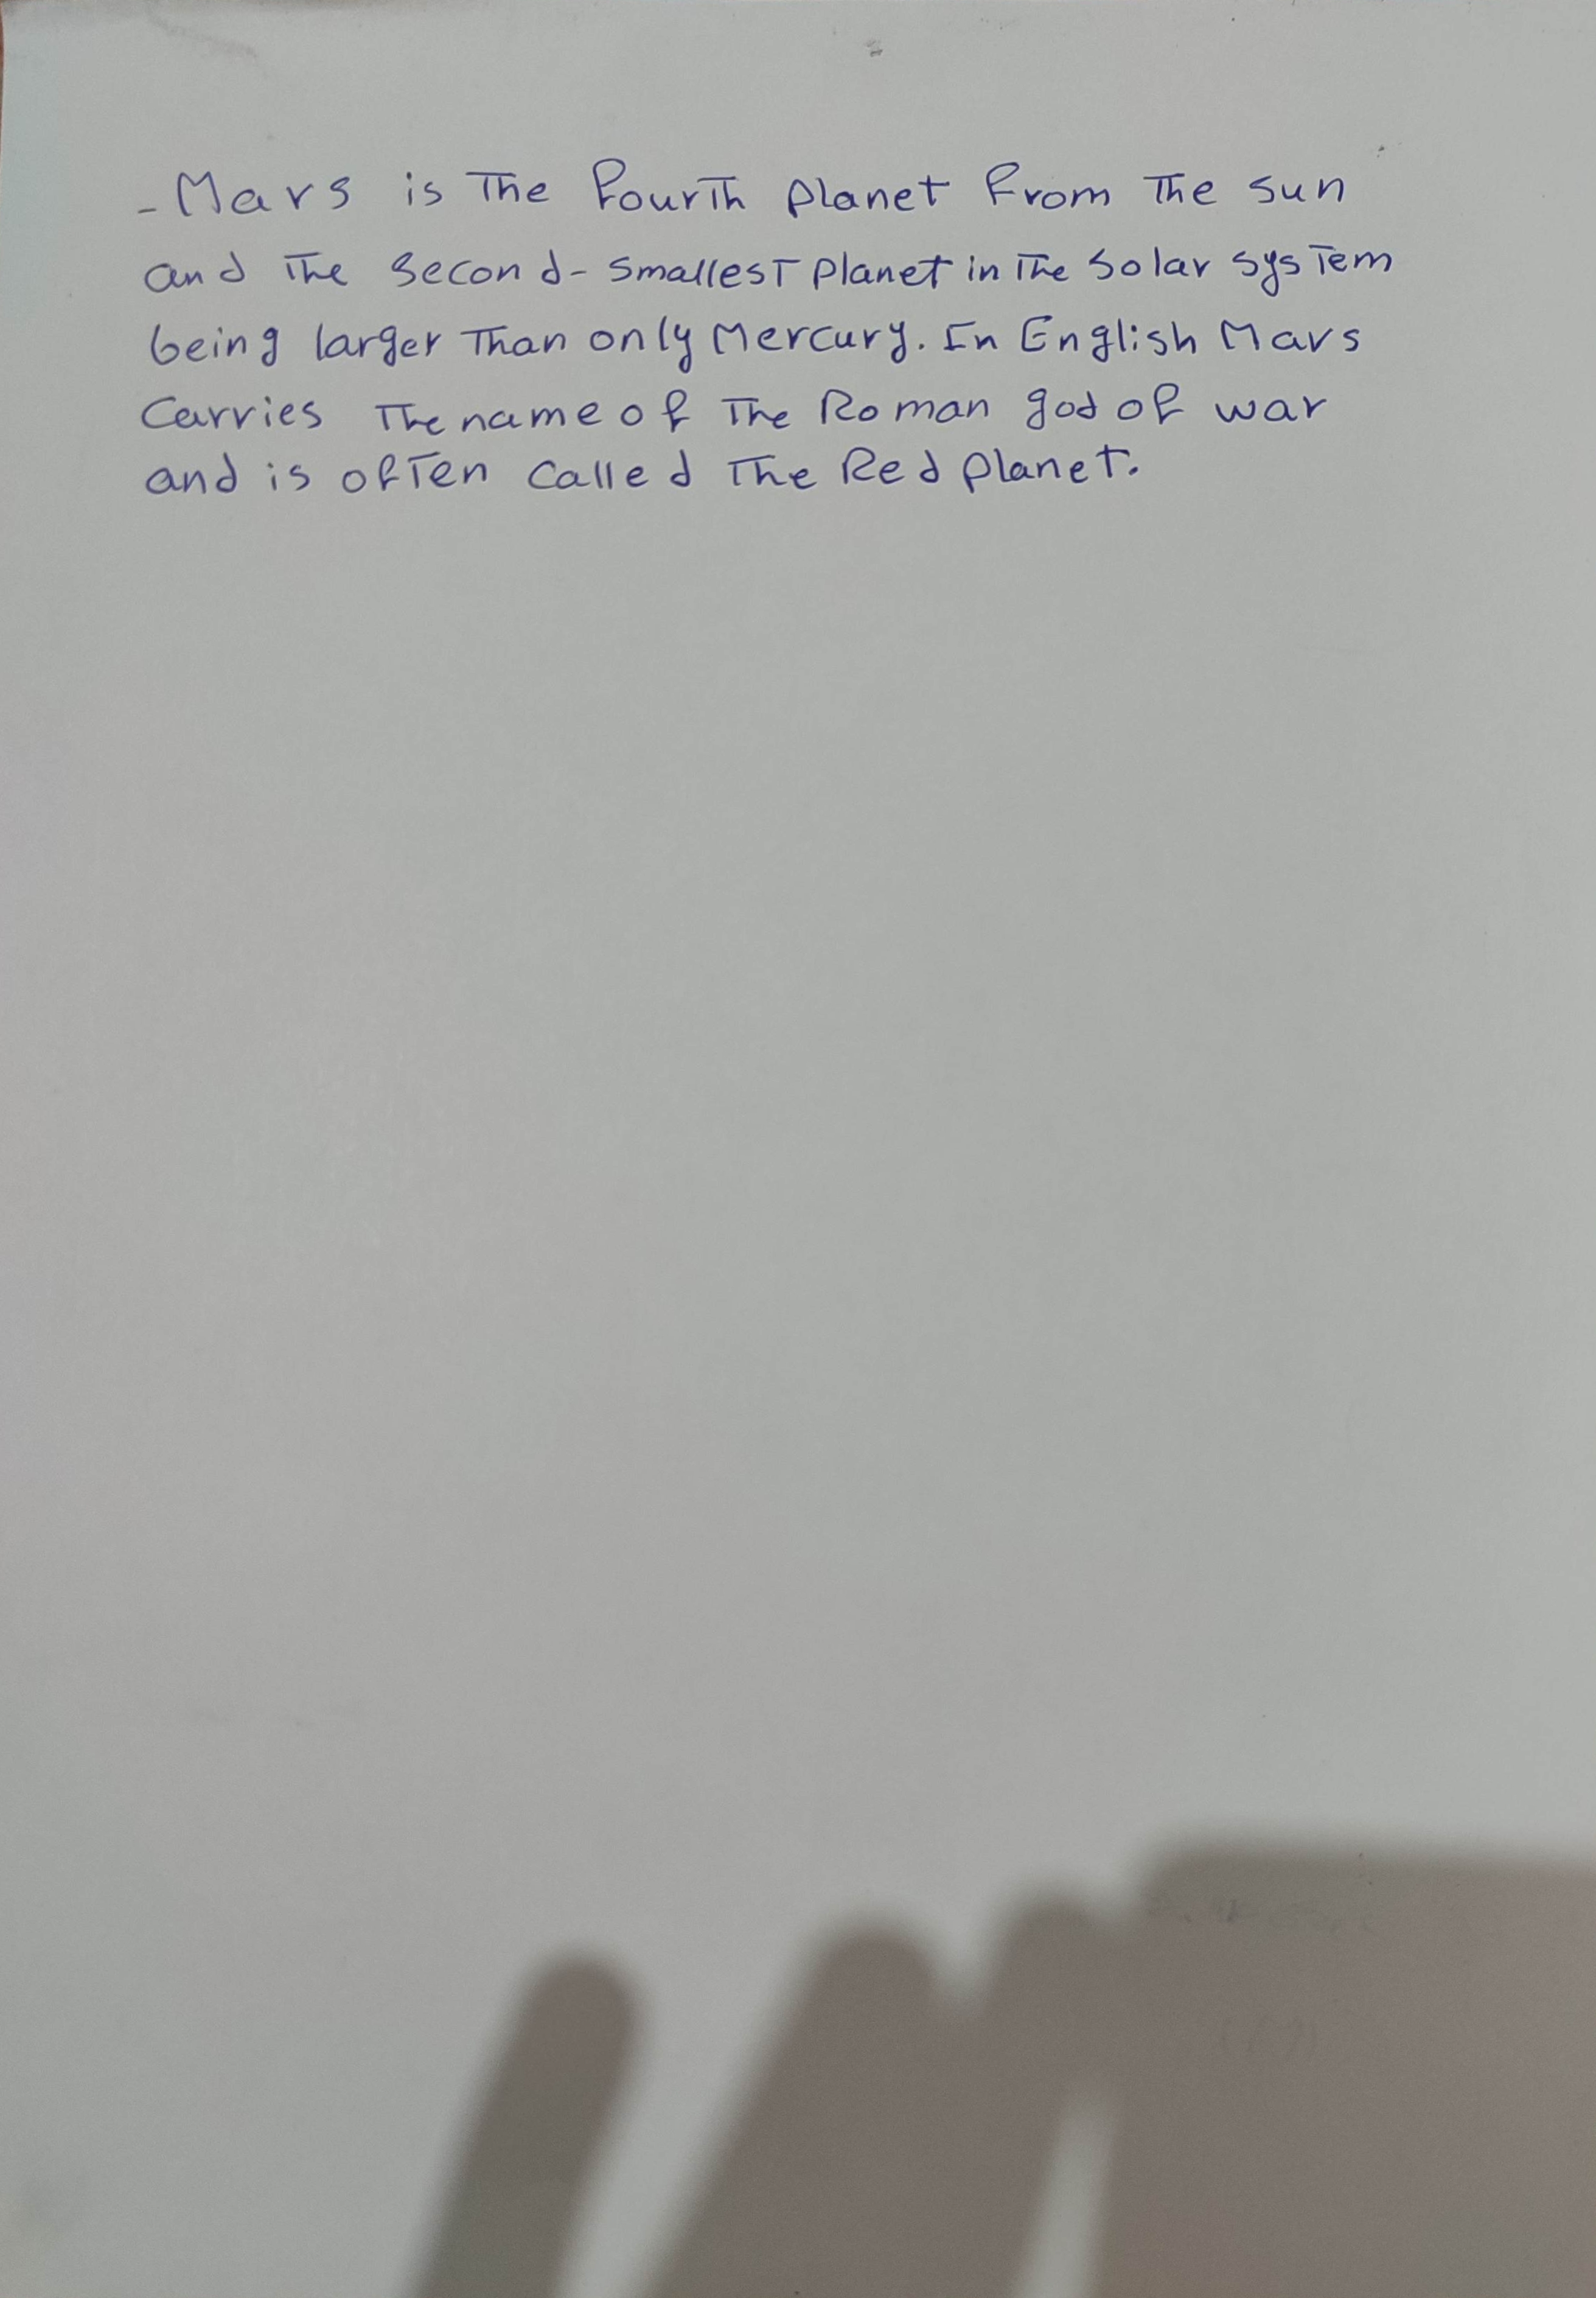 - Mars is The fourTh planet from The sun
and The second - smallesT planet in The Solar sysTem
being larger Than only Mercury. In English Mars
Carries The name of The Roman god of war
and is ofTen called The Red planet.